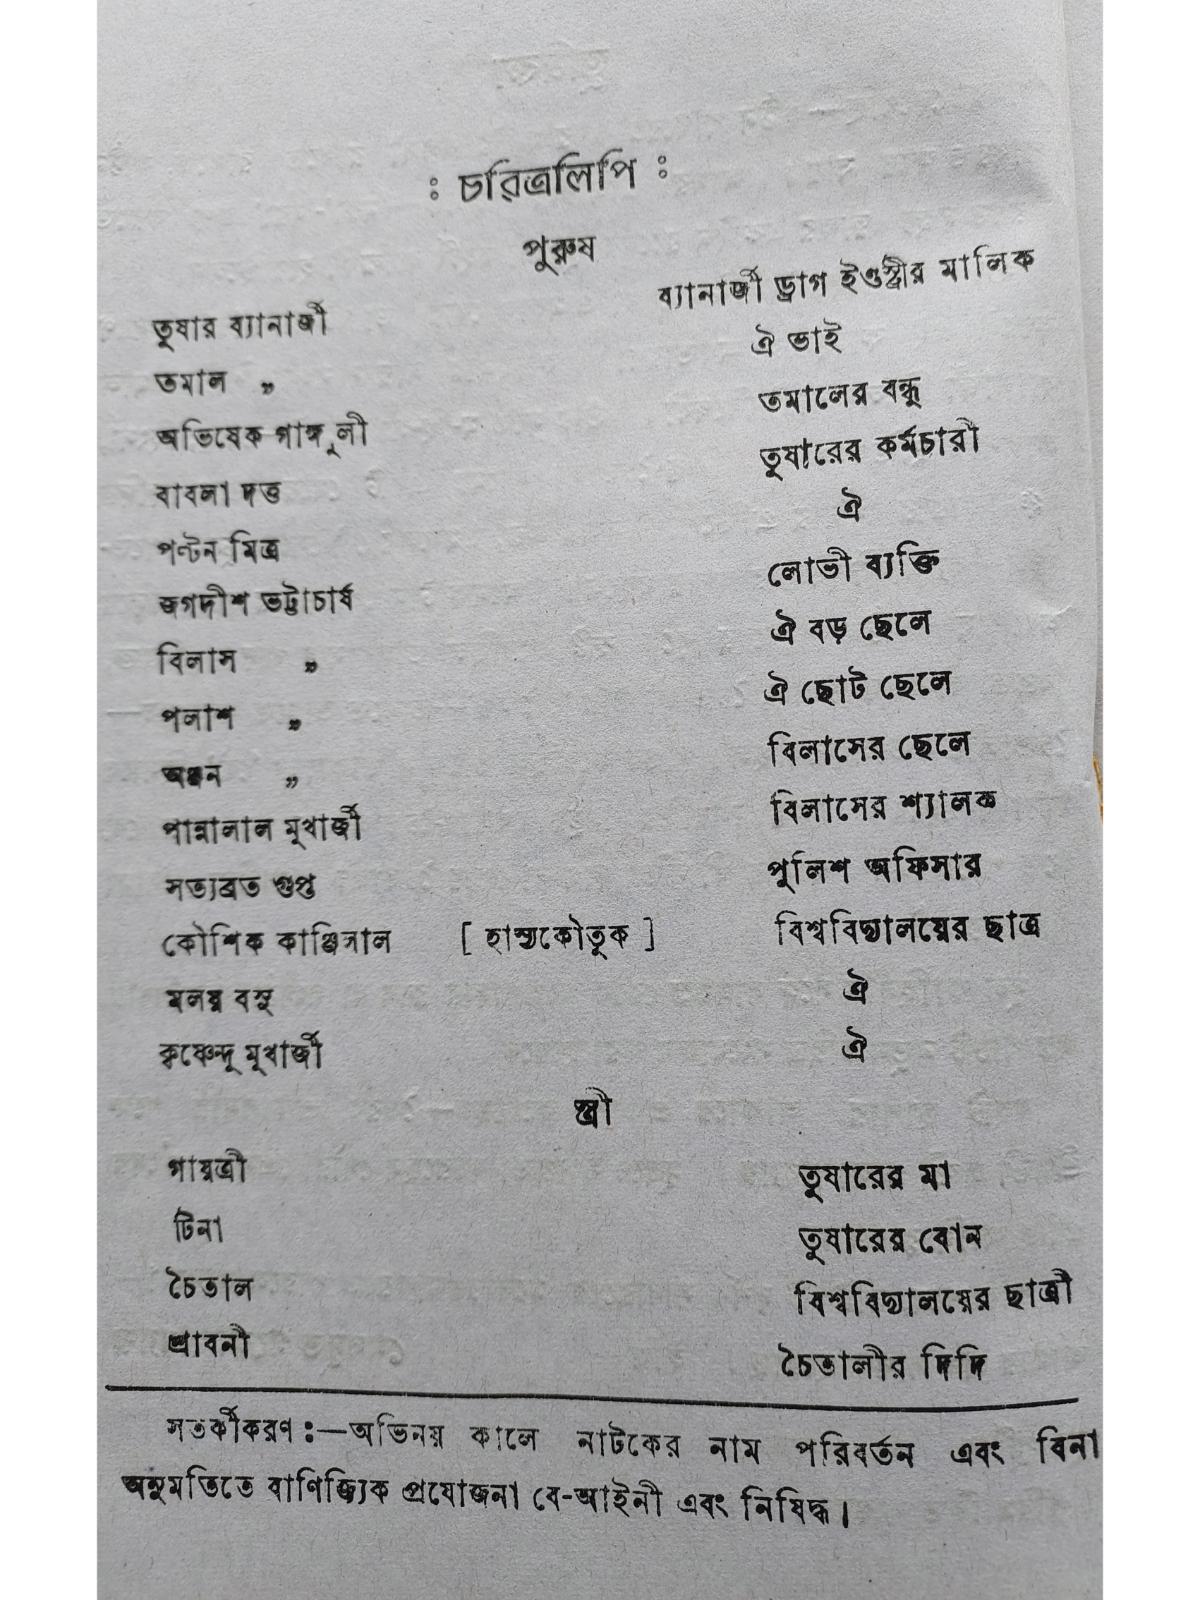 : চরিত্রলিপি :
পুরুষ
তুষার ব্যানার্জী ব্যানার্জী ড্রাগ ইণ্ডস্ট্রীর মালিক
তমাল „ ঐ ভাই
অভিষেক গাঙ্গুলী তমালের বন্ধু
বাবলা দত্ত তুষারের কর্মচারী
পল্টন মিত্র ঐ
জগদীশ ভট্টাচার্য লোভী ব্যক্তি
বিলাস „ ঐ বড় ছেলে
পলাশ „ ঐ ছোট ছেলে
„ বিলাসের ছেলে
পান্নালাল মুখার্জী বিলাসের শ্যালক
সত্যব্রত গুপ্ত পুলিশ অফিসার
কৌশিক কাঞ্জিলাল [ হাস্যকৌতুক ] বিশ্ববিদ্যালয়ের ছাত্র
মলয় বসু ঐ
কৃষ্ণেন্দু মুখার্জী ঐ
স্ত্রী
গায়ত্রী তুষারের মা
টিনা তুষারের বোন
চৈতাল বিশ্ববিদ্যালয়ের ছাত্রী
শ্রাবনী চৈতালীর দিদি
সতর্কীকরণ :—অভিনয় কালে নাটকের নাম পরিবর্তন এবং বিনা
অনুমতিতে বাণিজ্যিক প্রযোজনা বে-আইনী এবং নিষিদ্ধ।